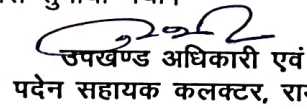 उपखण्ड अधिकारी एवं
पदेन सहायक कलक्टर,